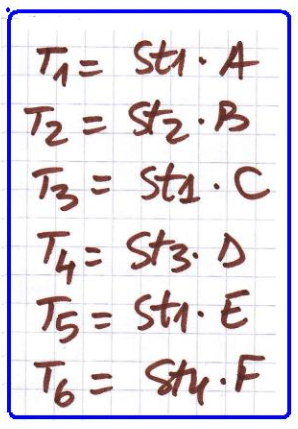 T1 = St1 · A
T2 = St2 · B
T3 = St1 · C
T4 = St3 · D
T5 = St1 · E
T6 = St4 · F